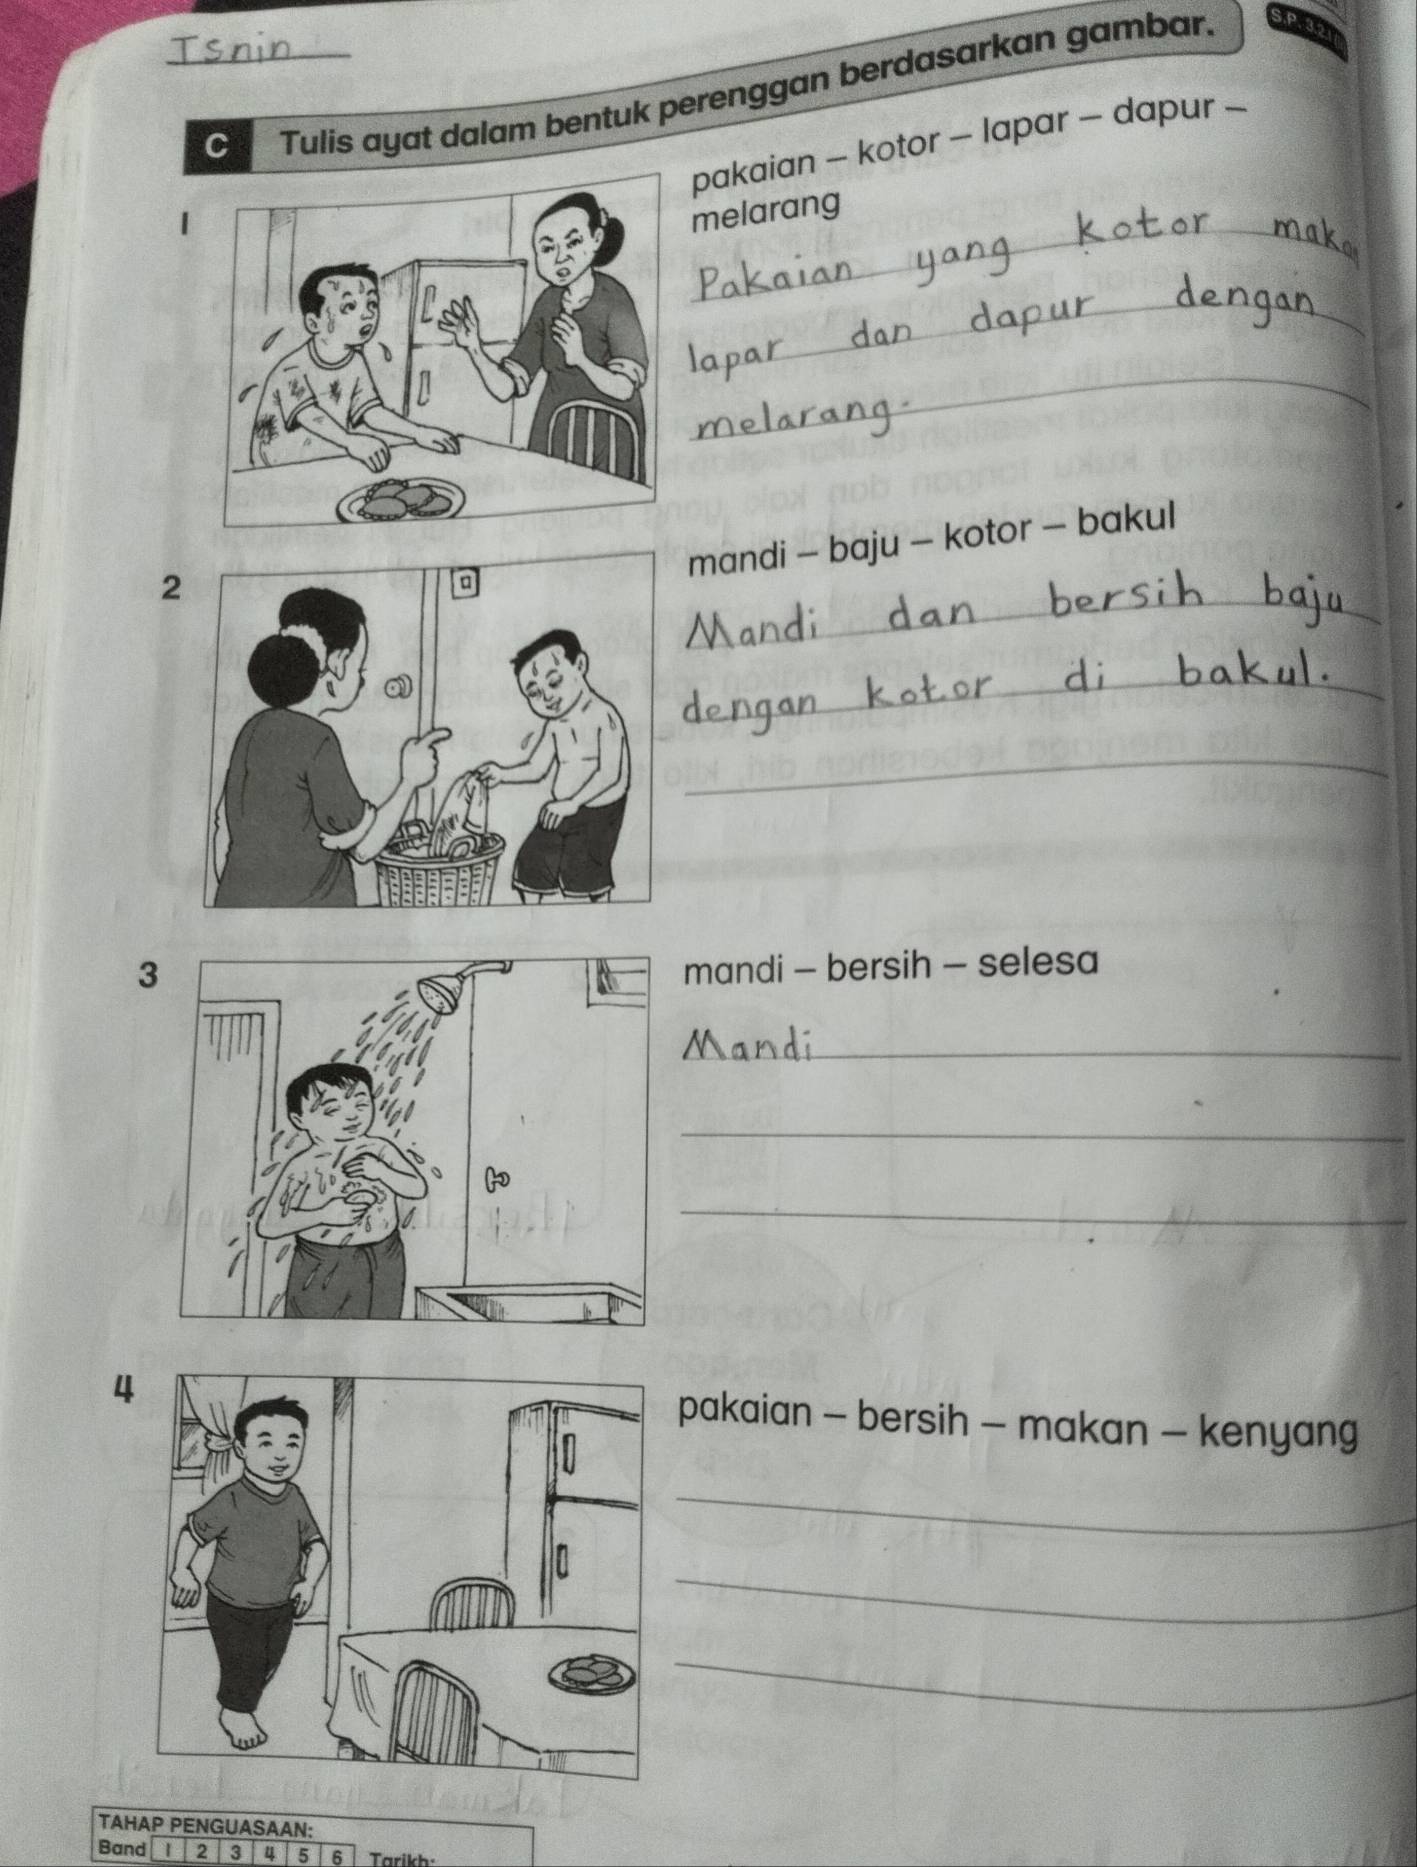 Isnin
C Tulis ayat dalam bentuk perenggan berdasarkan gambar.
S.P. 3.2.1
1
pakaian – kotor – lapar – dapur –
melarang
Pakaian yang kotor makan
lapar dan dapur dengan
melarang.
2
mandi – baju – kotor – bakul
Mandi dan bersih baju
dengan kotor di bakul.
3
mandi – bersih – selesa
Mandi
4
pakaian – bersih – makan – kenyang
TAHAP PENGUASAAN:
Band 1 2 3 4 5 6 Tarikh: